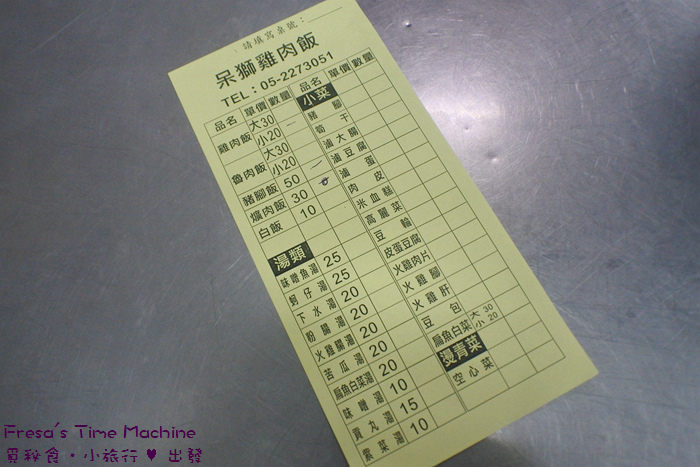 請填寫桌號：
呆獅雞肉飯
TEL：05-2273051
品名 單價 數量
雞肉飯 大30
小20
魯肉飯 大30
小20
豬腳飯 50
爌肉飯 30
白飯 10
湯類
味噌魚湯 25
蚵仔湯 25
下水湯 20
粉腸湯 20
火雞腸湯 20
苦瓜湯 20
扁魚白菜湯 20
味噌湯 10
貢丸湯 15
紫菜湯 10
品名 單價 數量
小菜
豬腳
筍干
滷大腸
滷豆腐
滷蛋
肉皮
米血糕
高麗菜
豆輪
皮蛋豆腐
火雞肉片
火雞腳
火雞肝
豆包
扁魚白菜 大30
小20
燙青菜
空心菜
Fresa's Time Machine
覓秘食·小旅行♥出發